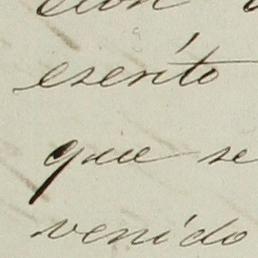 escrito
que se
venido